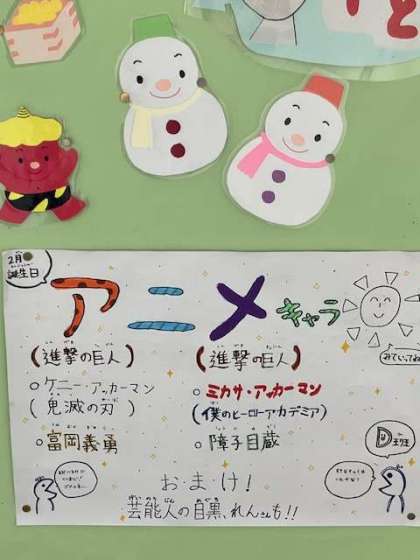 と
2月
誕生日
アニメキャラ
(進撃の巨人)
(進撃の巨人)
○ケニー・アッカーマン
○ミカサ・アッカーマン
(鬼滅の刃)
(僕のヒーローアカデミア)
○富岡義勇
○障子目蔵
みていってね
D
お・ま・け!
芸能人の目黒、れんさんも!!